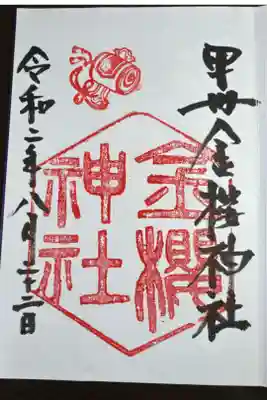 甲州金桜神社
金櫻
神社
令和二年八月二十二日